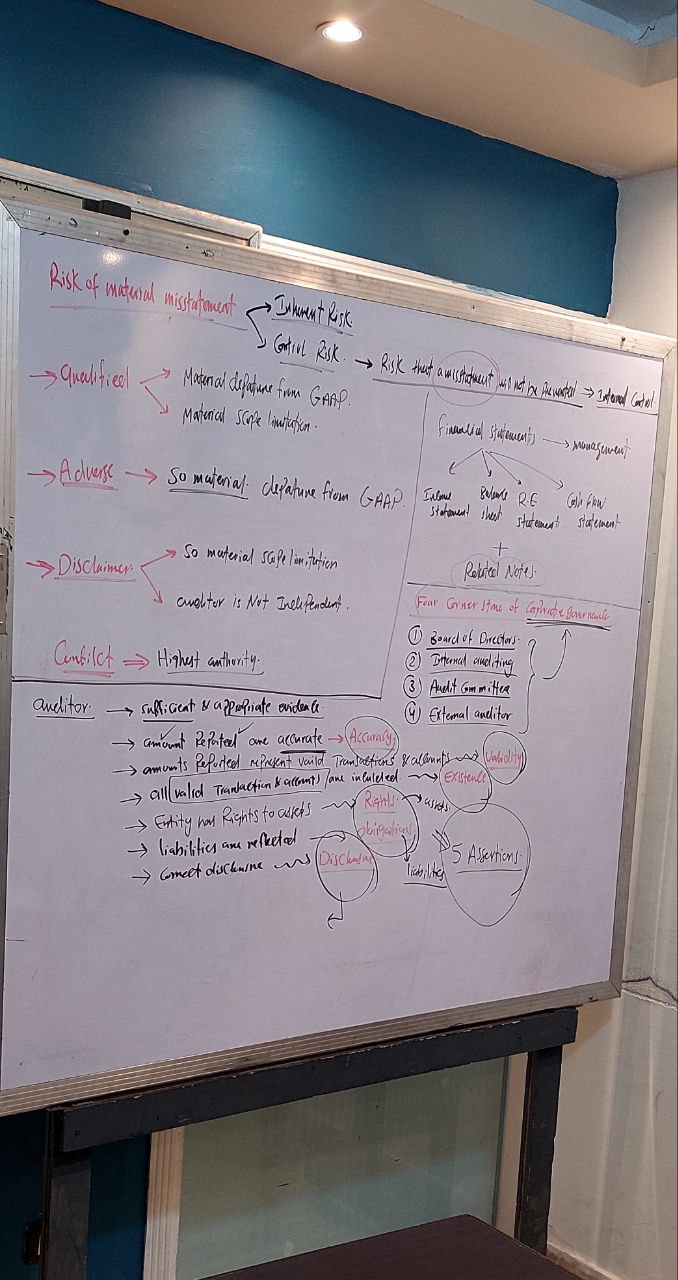 Risk of material misstatement → Inherent Risk
Control Risk. → Risk that a misstatement will not be Prevented → Internal Control.
→ Qualified → Material depature from GAAP.
→ Material scope limitation.
→ Adverse → So material depature from GAAP.
→ Disclaimer. → So material scope limitation
→ auditor is Not Independent.
Conflict ⇒ Highest authority.
Financial statements → management
Income statement
Balance sheet
R.E statement
Cash flow statement
+
Related Notes.
Four Corner stone of Corporate Governance
① Board of Directors.
② Internal auditing
③ Audit Committee
④ External auditor
auditor → sufficient & appropriate evidence.
→ amount Reported are accurate → Accuracy.
→ amounts Reported represent valid Transactions & accounts → Validity
→ all valid Transaction & accounts are included → Existence
→ Entity has Rights to assets → Rights. → assets.
→ liabilities are reflected → obligations → liabilities
→ Correct disclosure → Disclosure
5 Assertions.